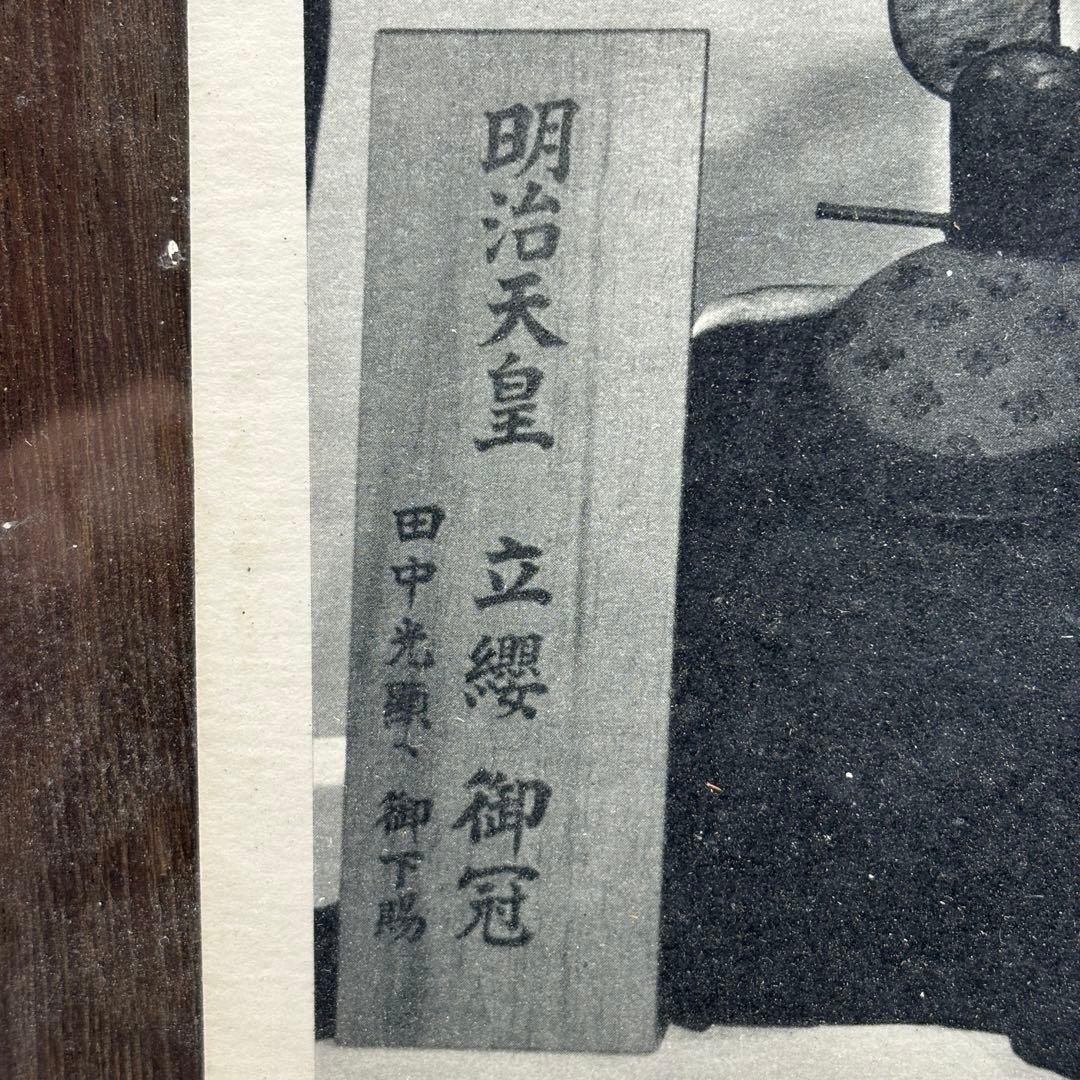 明治天皇 立纓御冠
田中光顕へ御下賜